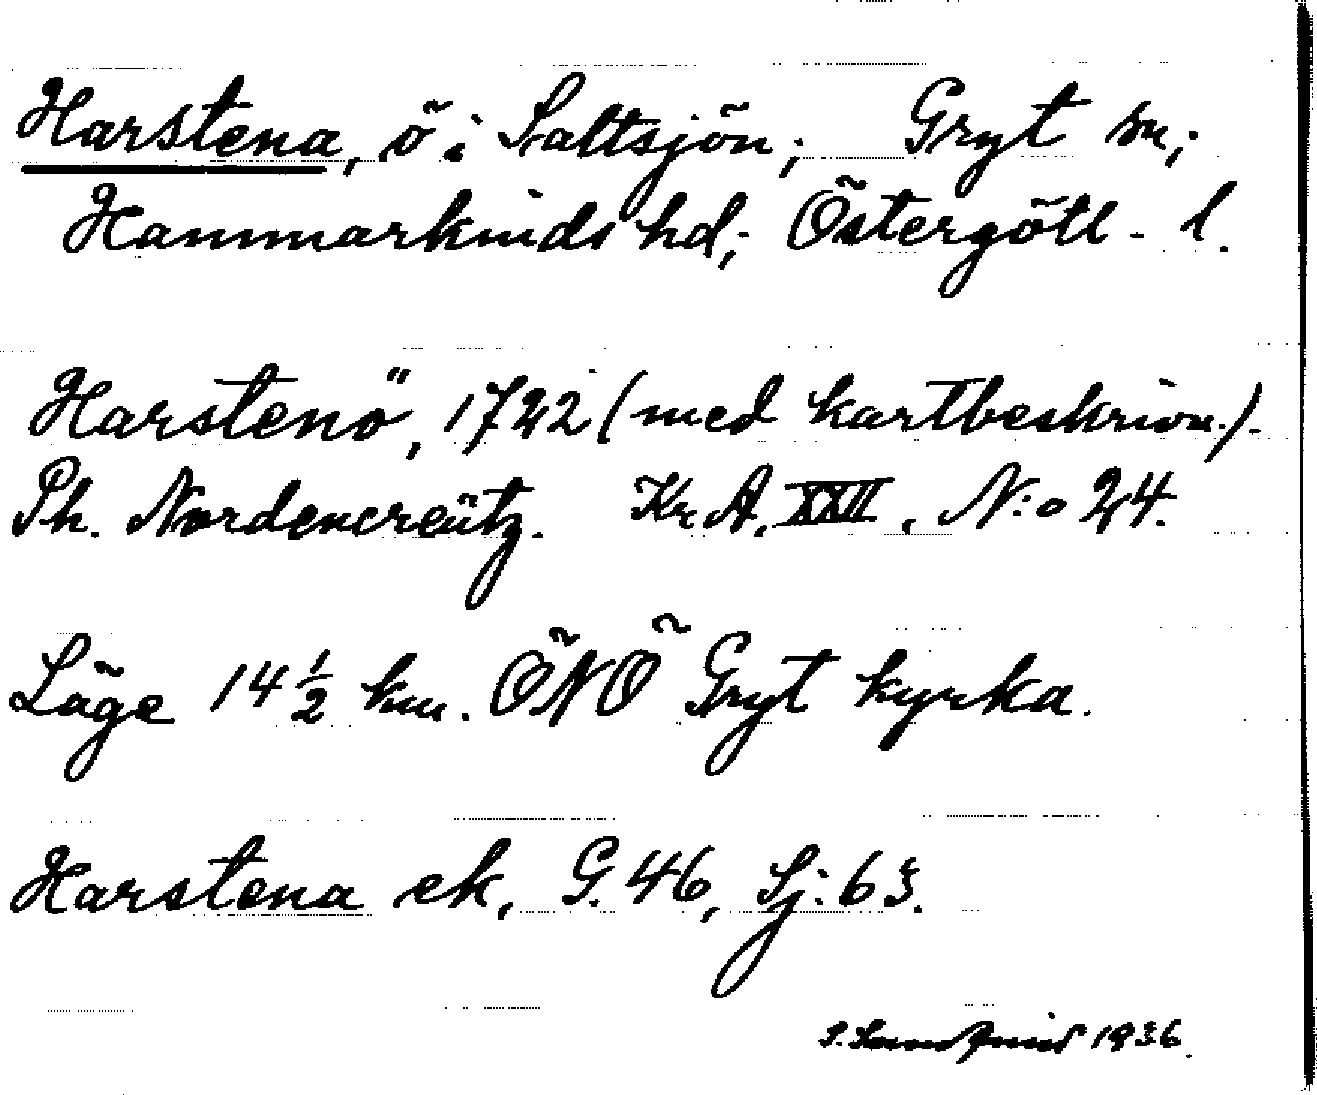 Harstena, ö i Saltsjön; Gryt sn;
Hammarkinds hd; Östergötl. l.
Harstenö, 1722 (med kartbeskrivn.).
Ph. Nordencreütz. Kr. A. XXII, N:o 24.
Läge 14 1/2 km. ÖNÖ Gryt kyrka.
Harstena ek, G. 46, Sj: 63.
S. 1936.